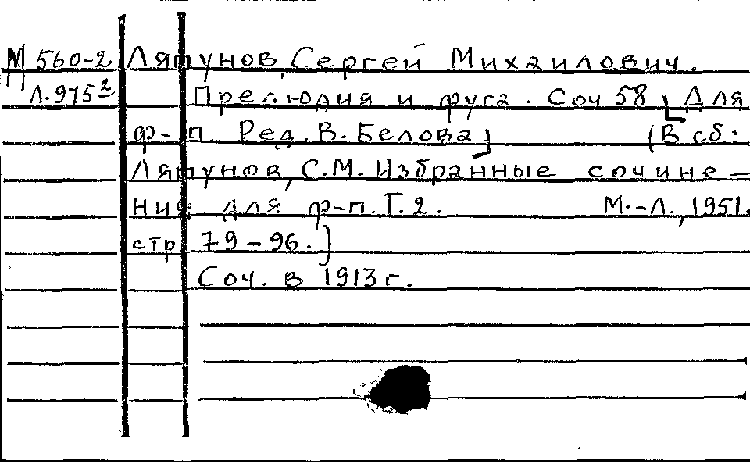 М 560-2 Ляпунов, Сергей Михайлович.
Л.975² Прелюдия и фуга. Соч 58 [Для
ф-п. Ред. В. Белова]  (В сб:
Ляпунов, С.М. Избранные сочине-
ния для ф-п. Т. 2.  М.-Л., 1951.
стр 79-96.)
Соч. в 1913 г.